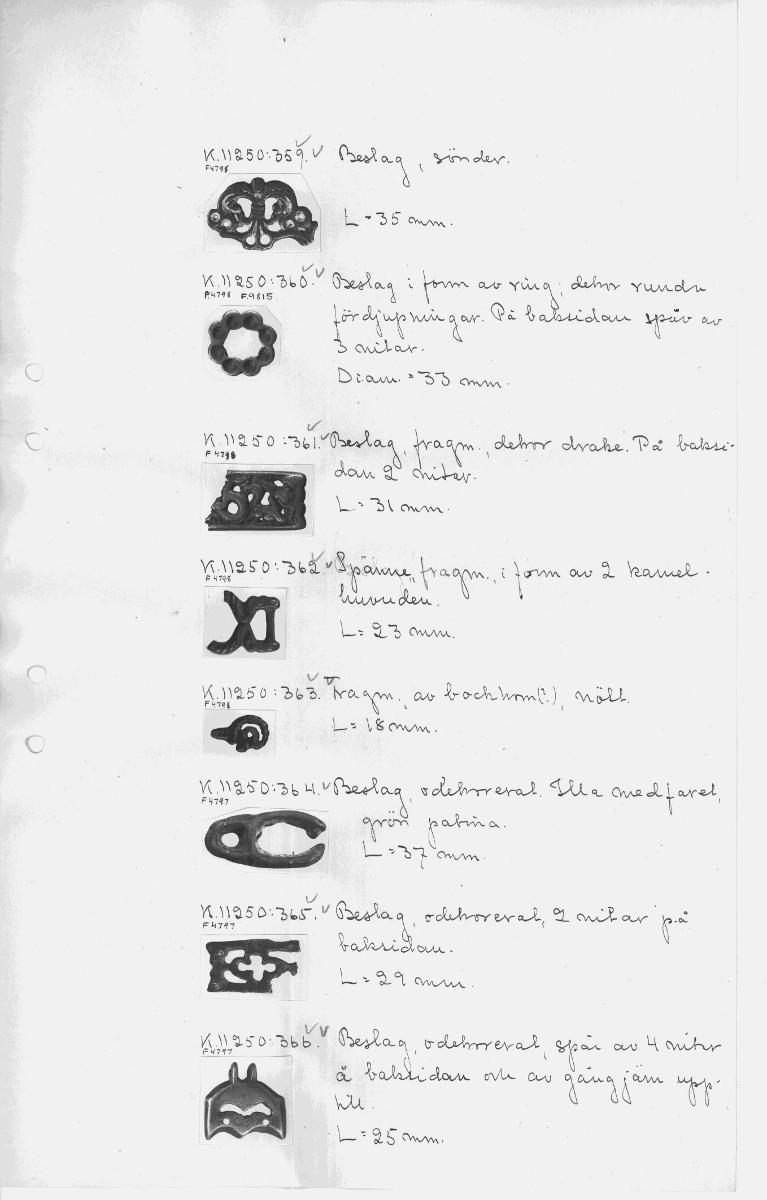 K.11250:359. Beslag, sönder.
F4798
L=35 mm.
K.11250:360. Beslag i form av ring, dekor runda
F4798 F.9815.
fördjupningar. På baksidan spår av
3 nitar.
Diam.=33 mm.
K.11250:361. Beslag, fragm., dekor drake. På baksi-
F4798
dan 2 nitar.
L=31 mm.
K.11250:362. Spänne, fragm., i form av 2 kamel-
F4798
huvuden.
L=23 mm.
K.11250:363. Fragm., av bockhorn(?), nött.
F4798
L=18 mm.
K.11250:364. Beslag, odekorerat. Illa medfaret,
F4797
grön patina.
L=37 mm.
K.11250:365. Beslag, odekorerat, 2 nitar på
F4797
baksidan.
L=29 mm.
K.11250:366. Beslag, odekorerat, spår av 4 nitar
F4797
å baksidan och av gångjärn upp-
till.
L=25 mm.